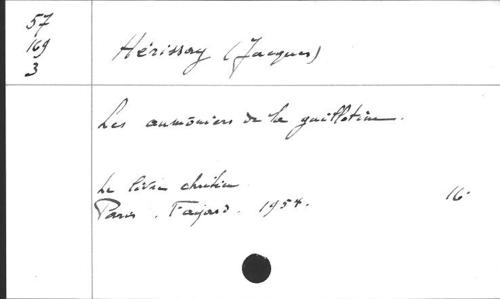 57
169
3
Hérissay (Jacques)
Les aumôniers de la guillotine.
Le livre chrétien
Paris. Fayard. 1954. 16